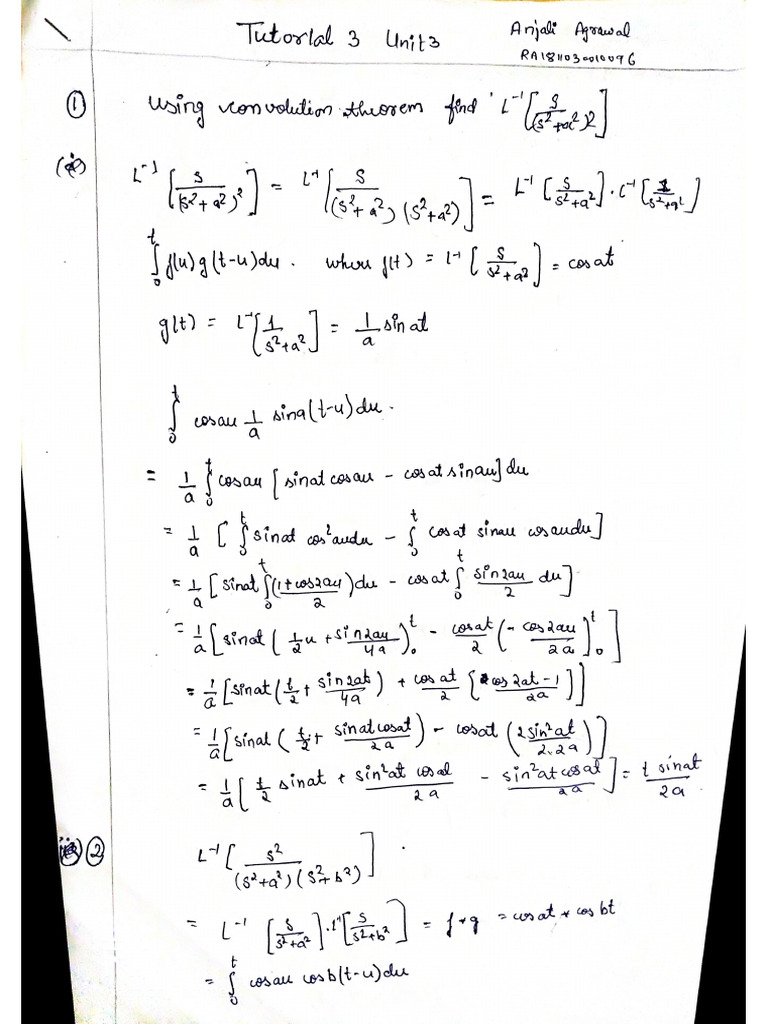 Tutorial 3 Unit 3
Anjali Agrawal
RA1811030010096
① Using convolution theorem find L⁻¹[s/(s²+a²)²]
L⁻¹[s/(s²+a²)²] = L⁻¹[s/(s²+a²)(s²+a²)] = L⁻¹[s/s²+a²] · L⁻¹[1/s²+a²]
∫₀ᵗ f(u) g(t-u) du. where f(t) = L⁻¹[s/s²+a²] = cos at
g(t) = L⁻¹[1/s²+a²] = 1/a sin at
∫₀ᵗ cos au 1/a sin a(t-u) du.
= 1/a ∫₀ᵗ cos au [sin at cos au - cos at sin au] du
= 1/a [∫₀ᵗ sin at cos² au du - ∫₀ᵗ cos at sin au cos au du]
= 1/a [sin at ∫₀ᵗ (1+cos 2au/2) du - cos at ∫₀ᵗ sin 2au/2 du]
= 1/a [sin at (1/2 u + sin 2au/4a)₀ᵗ - cos at/2 (-cos 2au/2a)₀ᵗ]
= 1/a [sin at (t/2 + sin 2at/4a) + cos at/2 {cos 2at - 1/2a}]
= 1/a [sin at (t/2 + sin at cos at/2a) - cos at (2 sin² at/2.2a)]
= 1/a [t/2 sin at + sin² at cos at/2a - sin² at cos at/2a] = t sin at/2a
② L⁻¹[s²/(s²+a²)(s²+b²)].
= L⁻¹[s/s²+a²] · L⁻¹[s/s²+b²] = f * g = cos at * cos bt
= ∫₀ᵗ cos au cos b(t-u) du